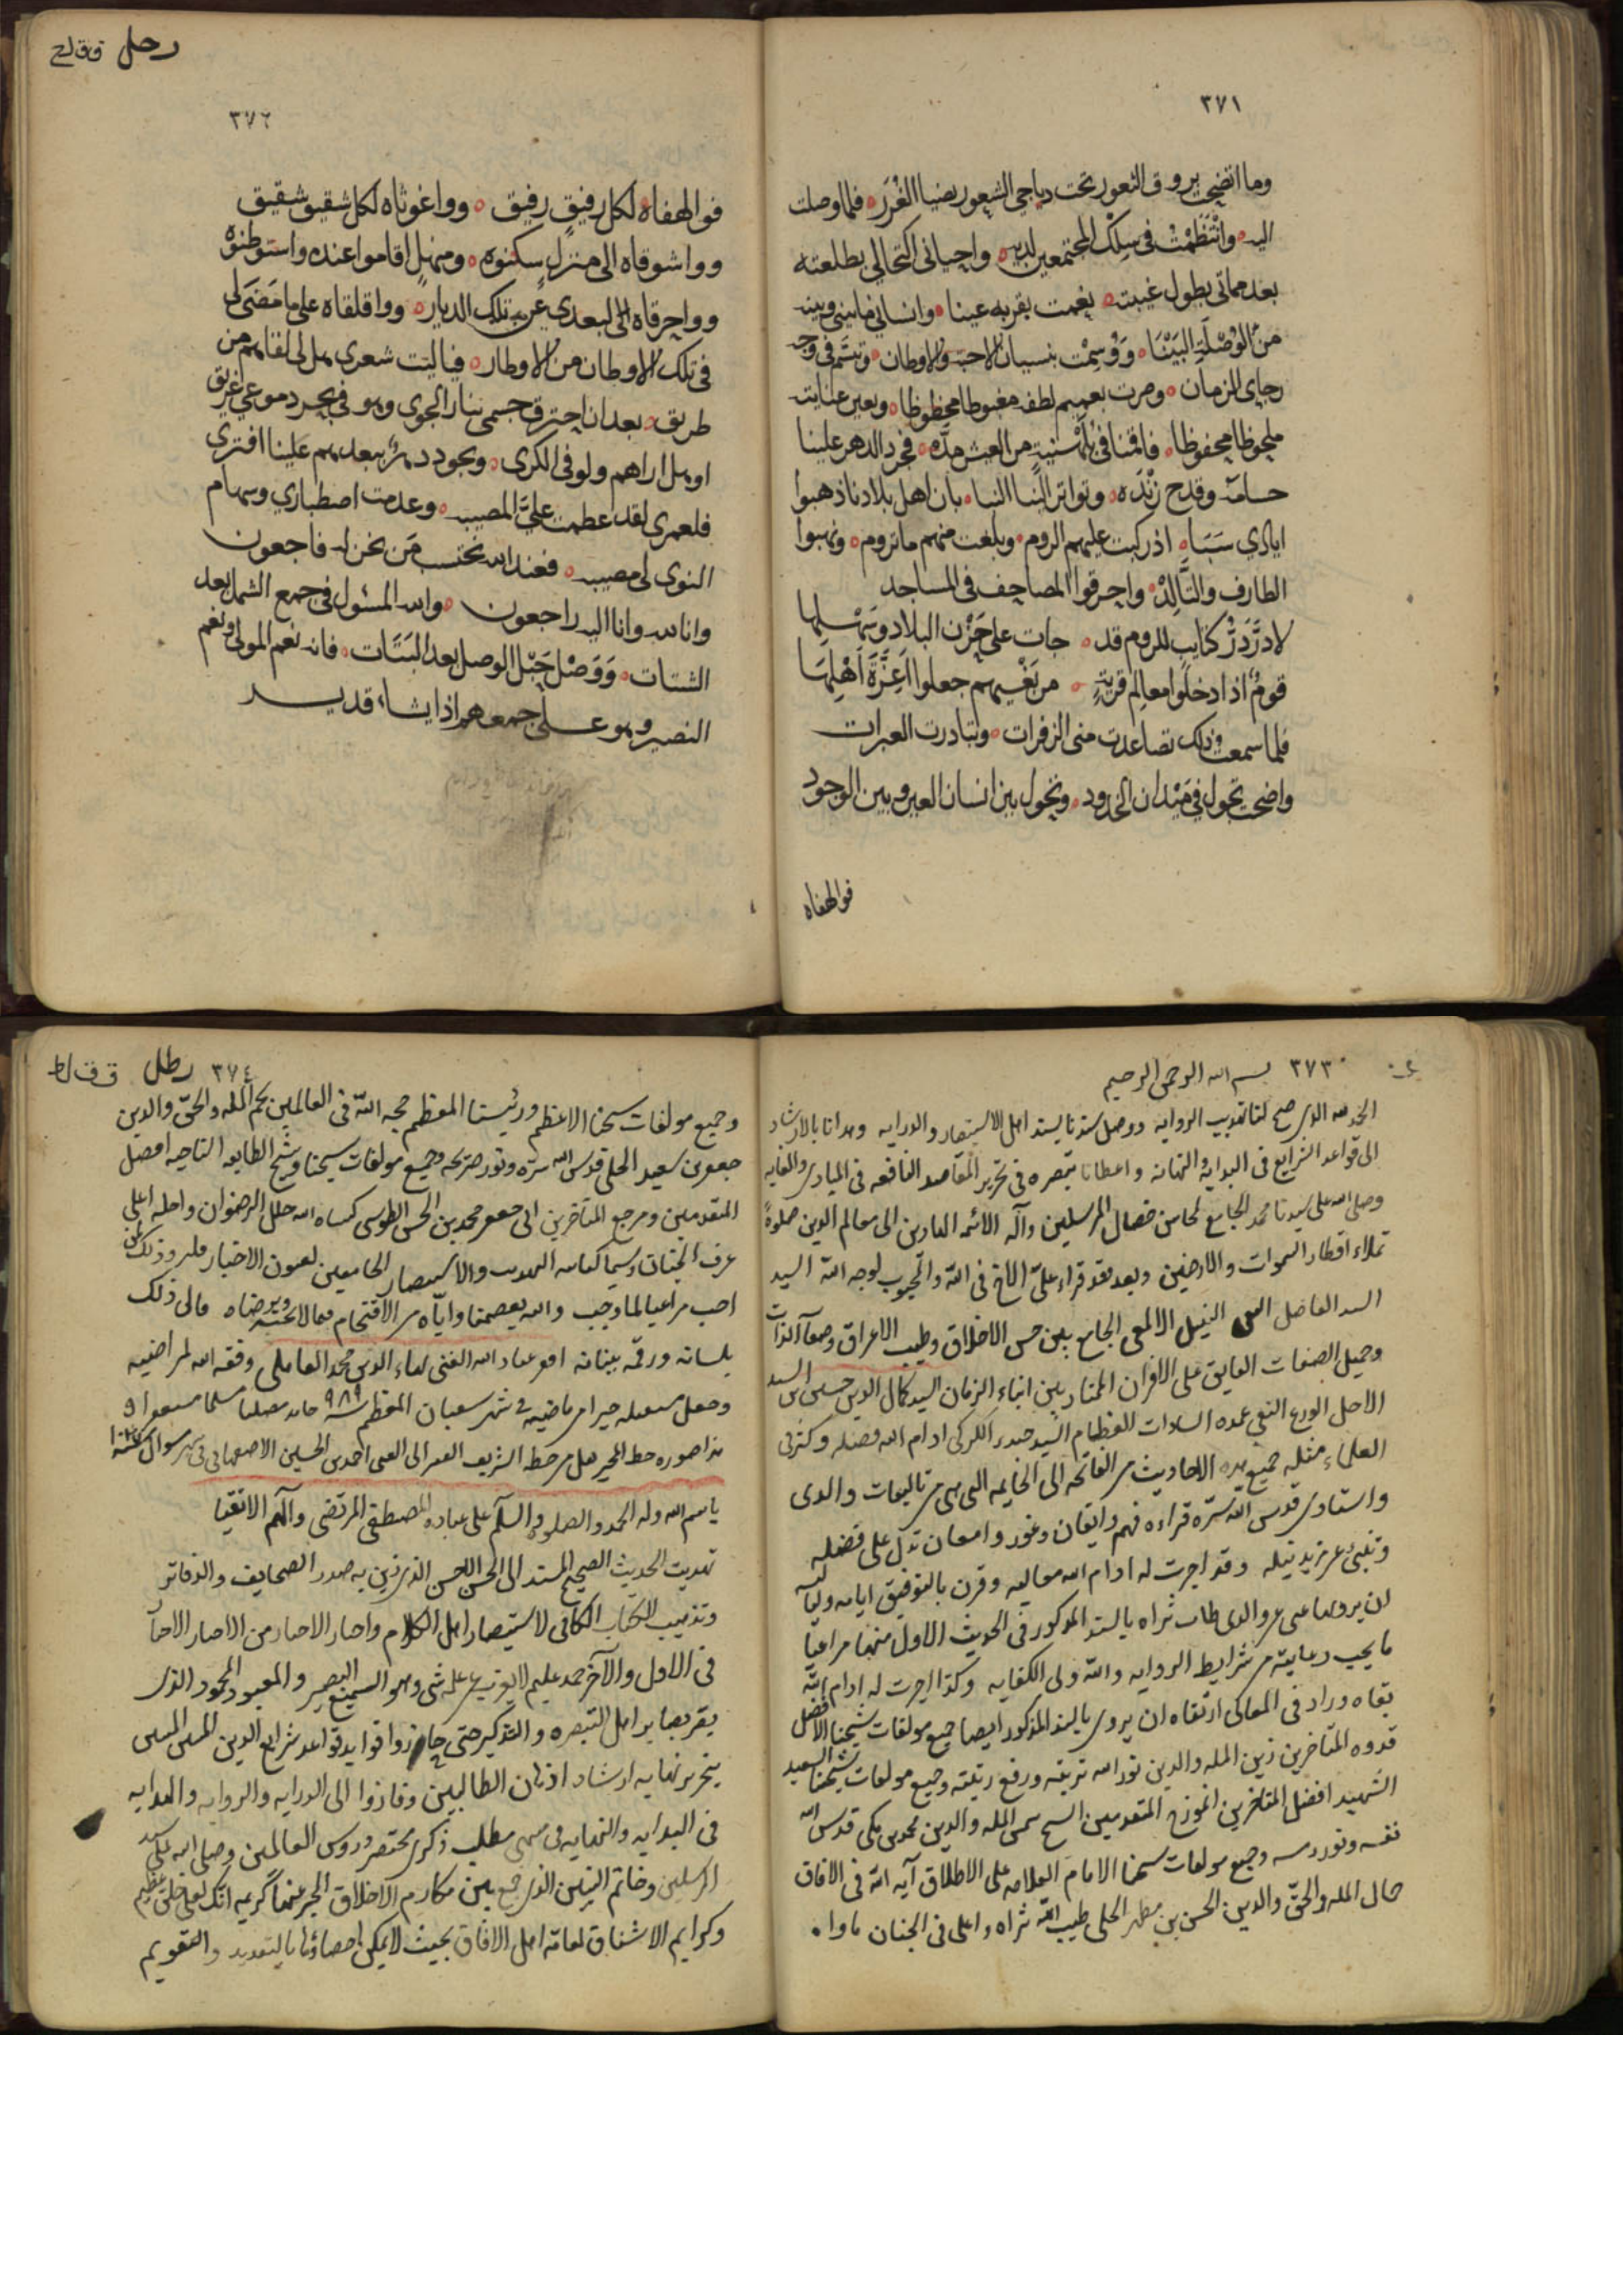 ٣٧١
وما اتضح بروق الثغور تحت دياجي الشعور بضيا الغرر ٥ فلما وصلت
اليه ٥ وانتظمت في سلك المجتمعين لديه ٥ واحياني اكتحالي بطلعته
بعد مماتي بطول غيبته ٥ نعمت بقربه عينا ٥ وانساني ما بيني وبينه
من الوصلة البينا ٥ ووسمت بنسيان الاحبة والاوطان ٥ وتبسم في وجه
رجاي الزمان ٥ وصرت بعميم لطفه مغبوطا محظوظا ٥ وبعين عنايته
ملحوظا محفوظا ٥ فاقمنا في بلهنية من العيش مدة ٥ فجرد الدهر علينا
حسامه وقدح زنده ٥ وتواتر النبا ٥ بان اهل بلادنا ذهبوا
ايادي سبا ٥ اذ ركبت عليهم الروم ٥ وبلغت منهم ما تروم ٥ ونهبوا
الطارف والتالد ٥ واحرقوا المصاحف في المساجد
لا در در كتايب للروم قد ٥ جات على حزن البلاد وسهلها
قوم اذا دخلوا معالم قرية ٥ من بغيهم جعلوا اعزة اهلها
فلما سمعت ذلك تصاعدت مني الزفرات ٥ وتبادرت العبرات
واضحت تجول في ميدان الخدود ٥ وتحول بين انسان العين وبين الوجود
فوالهفاه
رحل ققلح
٣٧٢
فوالهفاه لكل رفيق رفيق ٥ وواغوثاه لكل شقيق شقيق
وواشوقاه الى منزل سكنوه ٥ ومنهل اقاموا عنده واستوطنوه
وواحرقاه الى لبعدي عن تلك الديار ٥ وواقلقاه على ما مضى لي
في تلك الاوطان من الاوطار ٥ فياليت شعري هل لي لقاهم من
طريق ٥ بعد ان احترق جسمي بنار الجوى وهو في بحر دموعي غريق
او هل اراهم ولو في الكرى ٥ ويجود دهر ببعدهم علينا افترى
فلعمري لقد عظمت علي المصيبه ٥ وعدمت اصطباري وسهام
النوى لي مصيبه ٥ فعند الله نحتسب من نحن له فاجعون
وانا لله وانا اليه راجعون ٥ والله المسئول في جمع الشمل بعد
الشتات ٥ ووصل حبل الوصل بعد البتات ٥ فانه نعم المولى ونعم
النصير وهو على جمعهم اذا يشاء قدير
٣٧٣
بسم الله الرحمن الرحيم
الحمد لله الذي صحح لنا تهذيب الروايه ووصل سندنا بسند اهل الاستبصار والدرايه وهدانا بالارشاد
الى قواعد الشرايع في البدايه والنهايه واعطانا تبصره في تحرير المقاصد النافعه في المبادي والغايه
وصلى الله على سيدنا محمد الجامع لمحاسن خصال المرسلين وآله الائمه الهادين الى معالم الدين صلوة
تملاء اقطار السموات والارضين وبعد فقد قراء علي الاخ في الله والمحبوب لوجه الله السيد
السند الفاضل النبيل الالمعي الجامع بين حسن الاخلاق وطيب الاعراق وصفا الذات
وجميل الصفات الفايق على الاقران الممتاز بين ابناء الزمان السيد كمال الدين حسين ابن السيد
الاجل الورع التقي عمده السادات العظام السيد حيدر الكركي ادام الله فضله وكثر في
العلماء مثله جميع هذه الاحاديث من الفاتحه الى الخاتمه التي هي من تاليفات والدي
واستادي قدس الله سره قراءه فهم واتقان وغور وامعان تدل على فضله
وتنبئ عن مزيد نبله وقد اجزت له ادام الله معاليه وقرن بالتوفيق ايامه ولياليه
ان يرويها عني عن والدي طاب ثراه بالسند المذكور في الحديث الاول منها مراعيا
ما يجب رعايته من شرايط الروايه والله ولي الكفايه وكذا اجزت له ادام الله
بقاه وزاد في المعالى ارتقاه ان يروي بالسند المذكور ايضا جميع مولفات شيخنا الافضل
قدوه المتاخرين زين المله والدين نور الله تربته ورفع رتبته وجميع مولفات شيخنا السعيد
الشهيد افضل المتاخرين انموزج المتقدمين الشيخ شمس المله والدين محمد بن مكي قدس الله
نفسه ونور رمسه وجميع مولفات شيخنا الامام العلامه على الاطلاق آيه الله في الافاق
جمال المله والحق والدين الحسن بن مطهر الحلي طيب الله ثراه واعلى في الجنان ماواه
٣٧٤ رطل ققلط
وجميع مولفات شيخنا الاعظم ورئيسنا المعظم حجه الله في العالمين نجم المله والحق والدين
جعفر بن سعيد الحلي قدس الله سره ونور ضريحه وجميع مولفات شيخنا وشيخ الطايفه الناجيه افضل
المتقدمين ومرجع المتاخرين ابي جعفر محمد بن الحسن الطوسي كساه الله حلل الرضوان واحله اعلى
غرف الجنان وسيما كتابيه التهذيب والاستبصار الجامعين لعيون الاخبار فليرو ذلك لمن
احب مراعيا لما وجب والله يعصمنا واياه من الاقتحام فيما لا يحبه ويرضاه قال ذلك
بلسانه ورقمه ببنانه افقر عباد الله الغني بهاء الدين محمد العاملي وفقه الله لمراضيه
وجعل مستقبله خيرا من ماضيه في شهر شعبان المعظم سنه ٩٨٩ حامدا مصليا مسلما مستغفرا
هذا صوره خط المجيز نقل من خطه الشريف الفقير الى الغني احمد بن الحسين الاصفهاني في شهر شوال
باسم الله وله الحمد والصلوة والسلم على عباده المصطفى المرتضى وآلهم الاتقيا
تهذيب الحديث الصحيح المسند الى الحسن الاحسن الذي تزين به صدور الصحايف والدفاتر
وتذهيب الكتاب الكافي لاستبصار اهل الكلام
في الاول والآخر حمد عليم لا يعزب عن علمه شي وهو السميع البصير والمعبود المحمود الذي
بصائر اهل التبصره والتذكير حتى حازوا فوايد قواعد شرايع الدين
بتحرير نهايه ارشاد اذهان الطالبين وفازوا الى الدرايه والروايه والهدايه
في البدايه والنهايه مطلب ذكرى مختصر دروس العالمين وصلى الله على سيد
المرسلين وخاتم النبيين الذي جمع بين مكارم الاخلاق المخبر عنها كريمه انك لعلى خلق عظيم
وكرايم الاشفاق لعامه اهل الافاق بحيث لا يمكن احصاؤها بالتعديد والتقويم